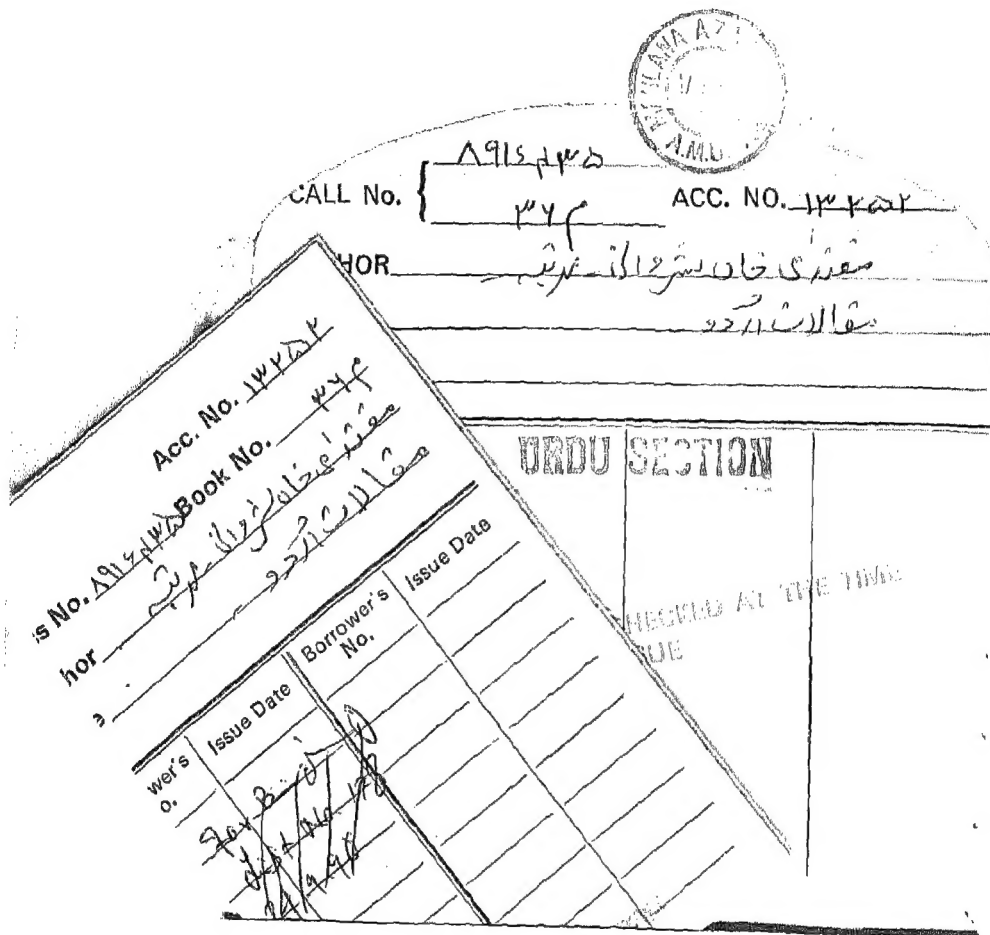 MAULANA AZ
A.M.U.
CALL No. { ۸۹۱۶۴۳۵
۳۷م
ACC. NO. ۱۳۲۵۲
HOR مقتدیٰ خاں شروانی - مرتبہ
مقالات اردو
URDU SECTION
HECKED AT THE TIME
SUE
Acc. No. ۱۳۲۵۲
s No. ۸۹۱۶۴۳۵ Book No. ۳۷م
hor مقتدیٰ خاں شروانی - مرتبہ
مقالات اردو
wer's
o.
Issue Date
Borrower's
No.
Issue Date